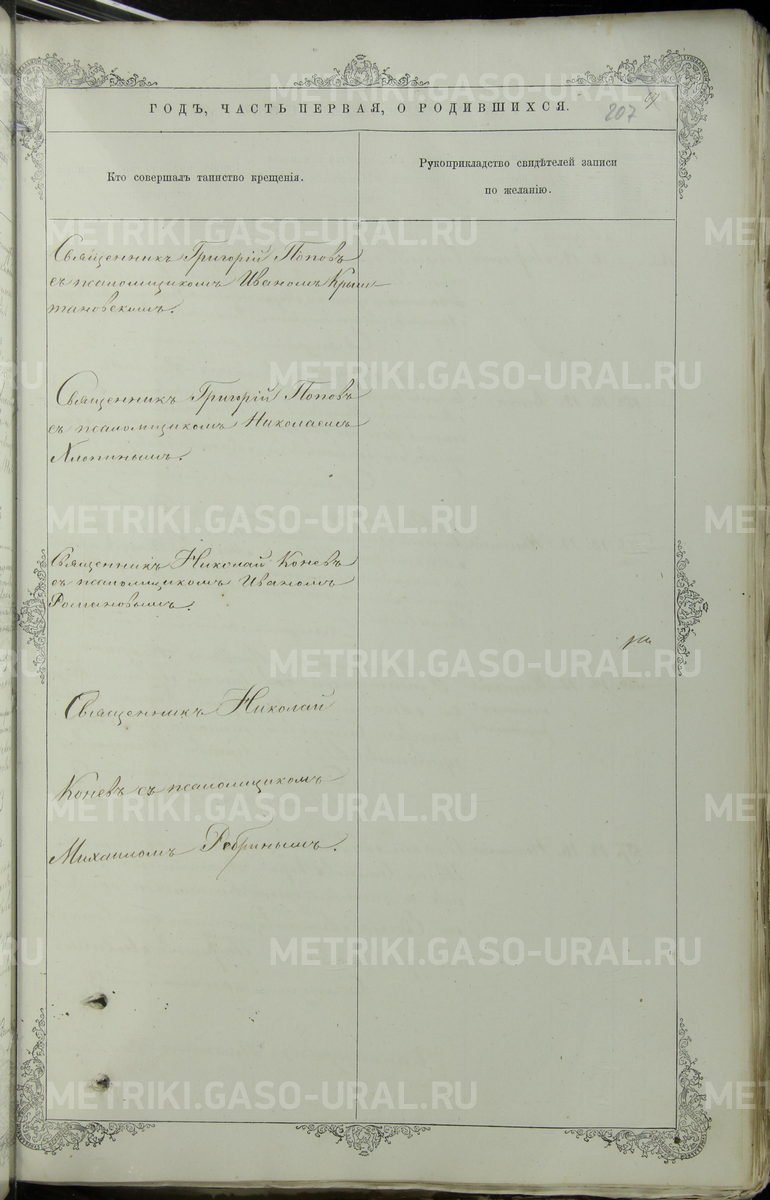 ГОДЪ, ЧАСТЬ ПЕРВАЯ, О РОДИВШИХСЯ.
207
Кто совершалъ таинство крещенія.
Рукоприкладство свидѣтелей записи
по желанію.
Священникъ Григорій Поповъ
съ псаломщикомъ Иваномъ Крыш-
тановскимъ.
Священникъ Григорій Поповъ
съ псаломщикомъ Николаемъ
Хлопинымъ.
Священникъ Николай Коневъ
съ псаломщикомъ Иваномъ
Романовымъ.
Священникъ Николай
Коневъ съ псаломщикомъ
Михаиломъ Ребринымъ.
METRIKI.GASO-URAL.RU